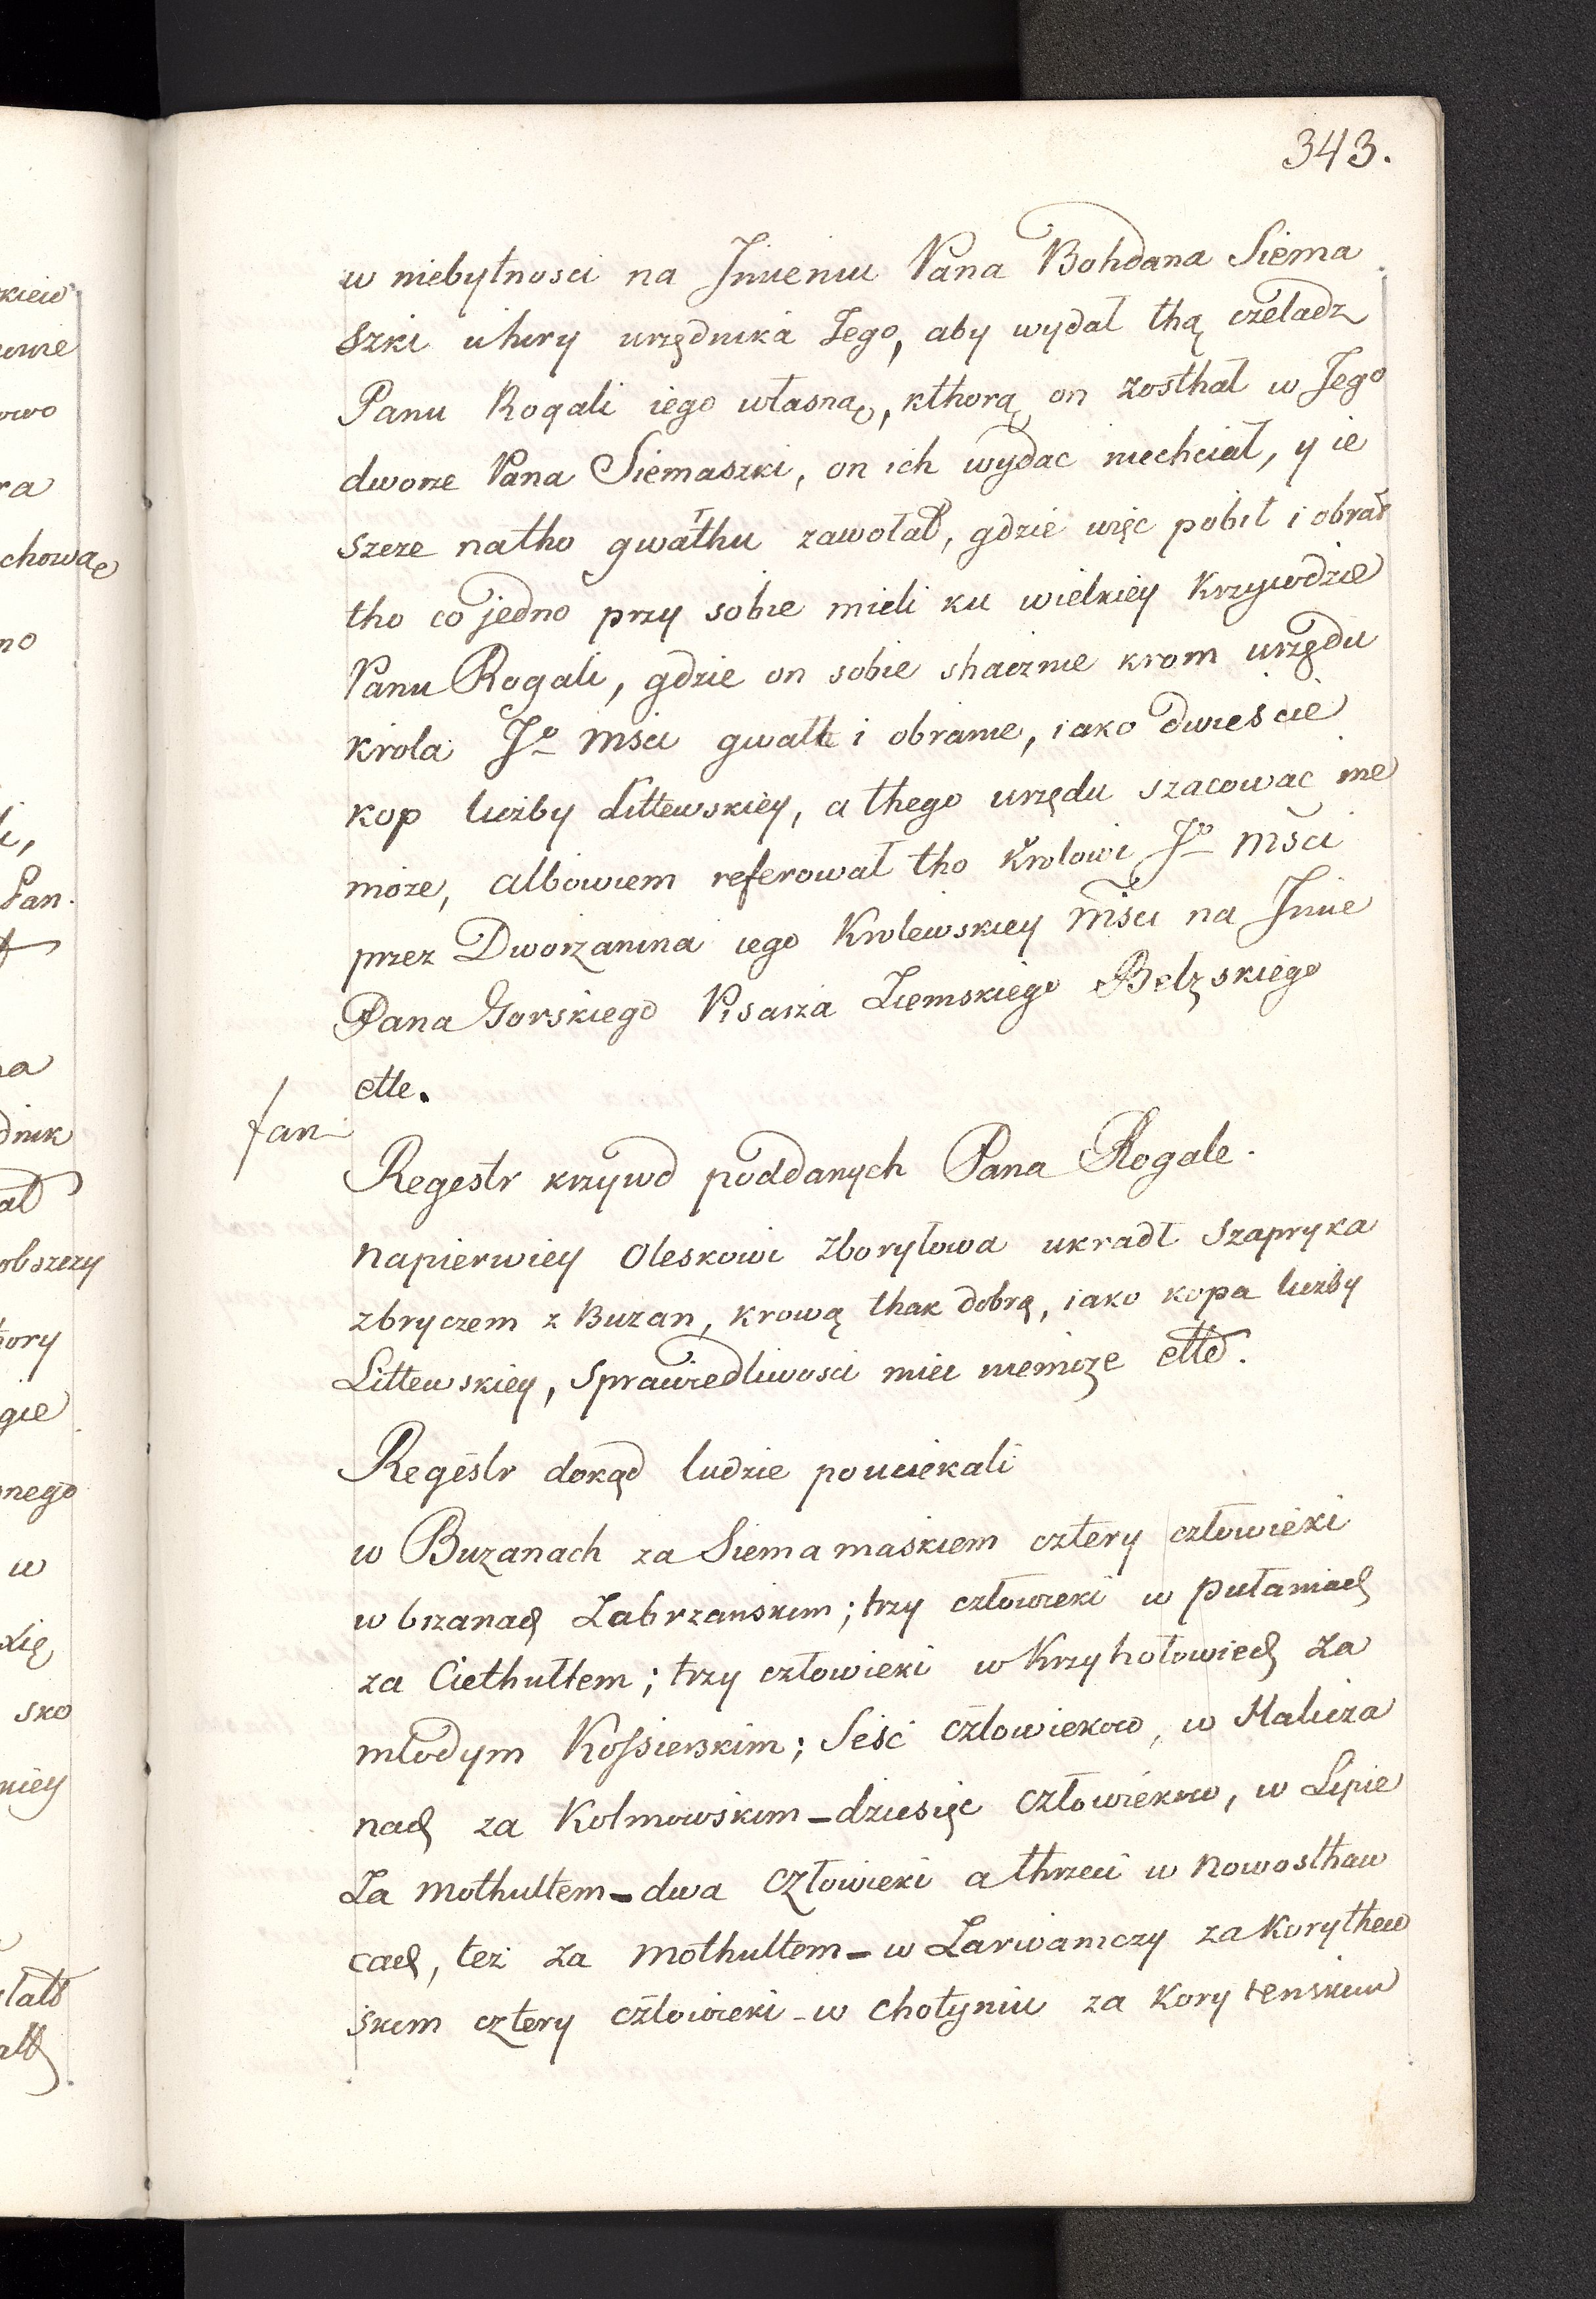 343.
w niebytnosci na Jmieniu Pana Bohdana Siema
szki uhury urzędnika Jego, aby wydał thą czeladz
Panu Rogali iego własną, kthorą on zosthał w Jego
dworze Pana Siemaszki, on ich wydac niechciał, y ie
szcze natho gwałthu zawołał, gdzie więc pobił i obrał
tho co jedno przy sobie mieli ku wielkiey krzywdzie
Panu Rogali, gdzie on sobie shacznie krom urzędu
krola Jo Mści gwałt i obranie, iako dwieście
kop liczby Littewskiey, a thego urzędu szacowac nie
może, albowiem referował tho Krolowi Jo Mści
przez Dworzanina iego Krolewskiey Mści na Jmie
Pana Gorskiego Pisarza Ziemskiego Belzskiego
ette.
fan
Regestr krzywd poddanych Pana Rogale.
napierwiey Oleskowi Zboryłowa ukradł Szapryka
zbryczem z Buzan, krową thak dobrą, iako kopa liczby
Littewskiey, Sprawiedliwosci miec niemoze ette.
Regestr dokąd ludzie pouciekali
w Buzanach za Siemamaskiem cztery człowieki
w brzanach Zabrzanskim; trzy człowieki w pułaniach
za Ciethułtem; trzy człowieki w Krzyhołowiech za
młodym Kossierskim; Seść człowiekow, w Halicza
nach za Kolmowskim – dziesięc człowiekow, w Lipie
Za Mothułtem – dwa człowieki a thrzeci w Nowosthaw
cach, też za Mothułtem – w Zarwanczy za Korythew
skim cztery człowieki – w Chołyniu za Korytenskim